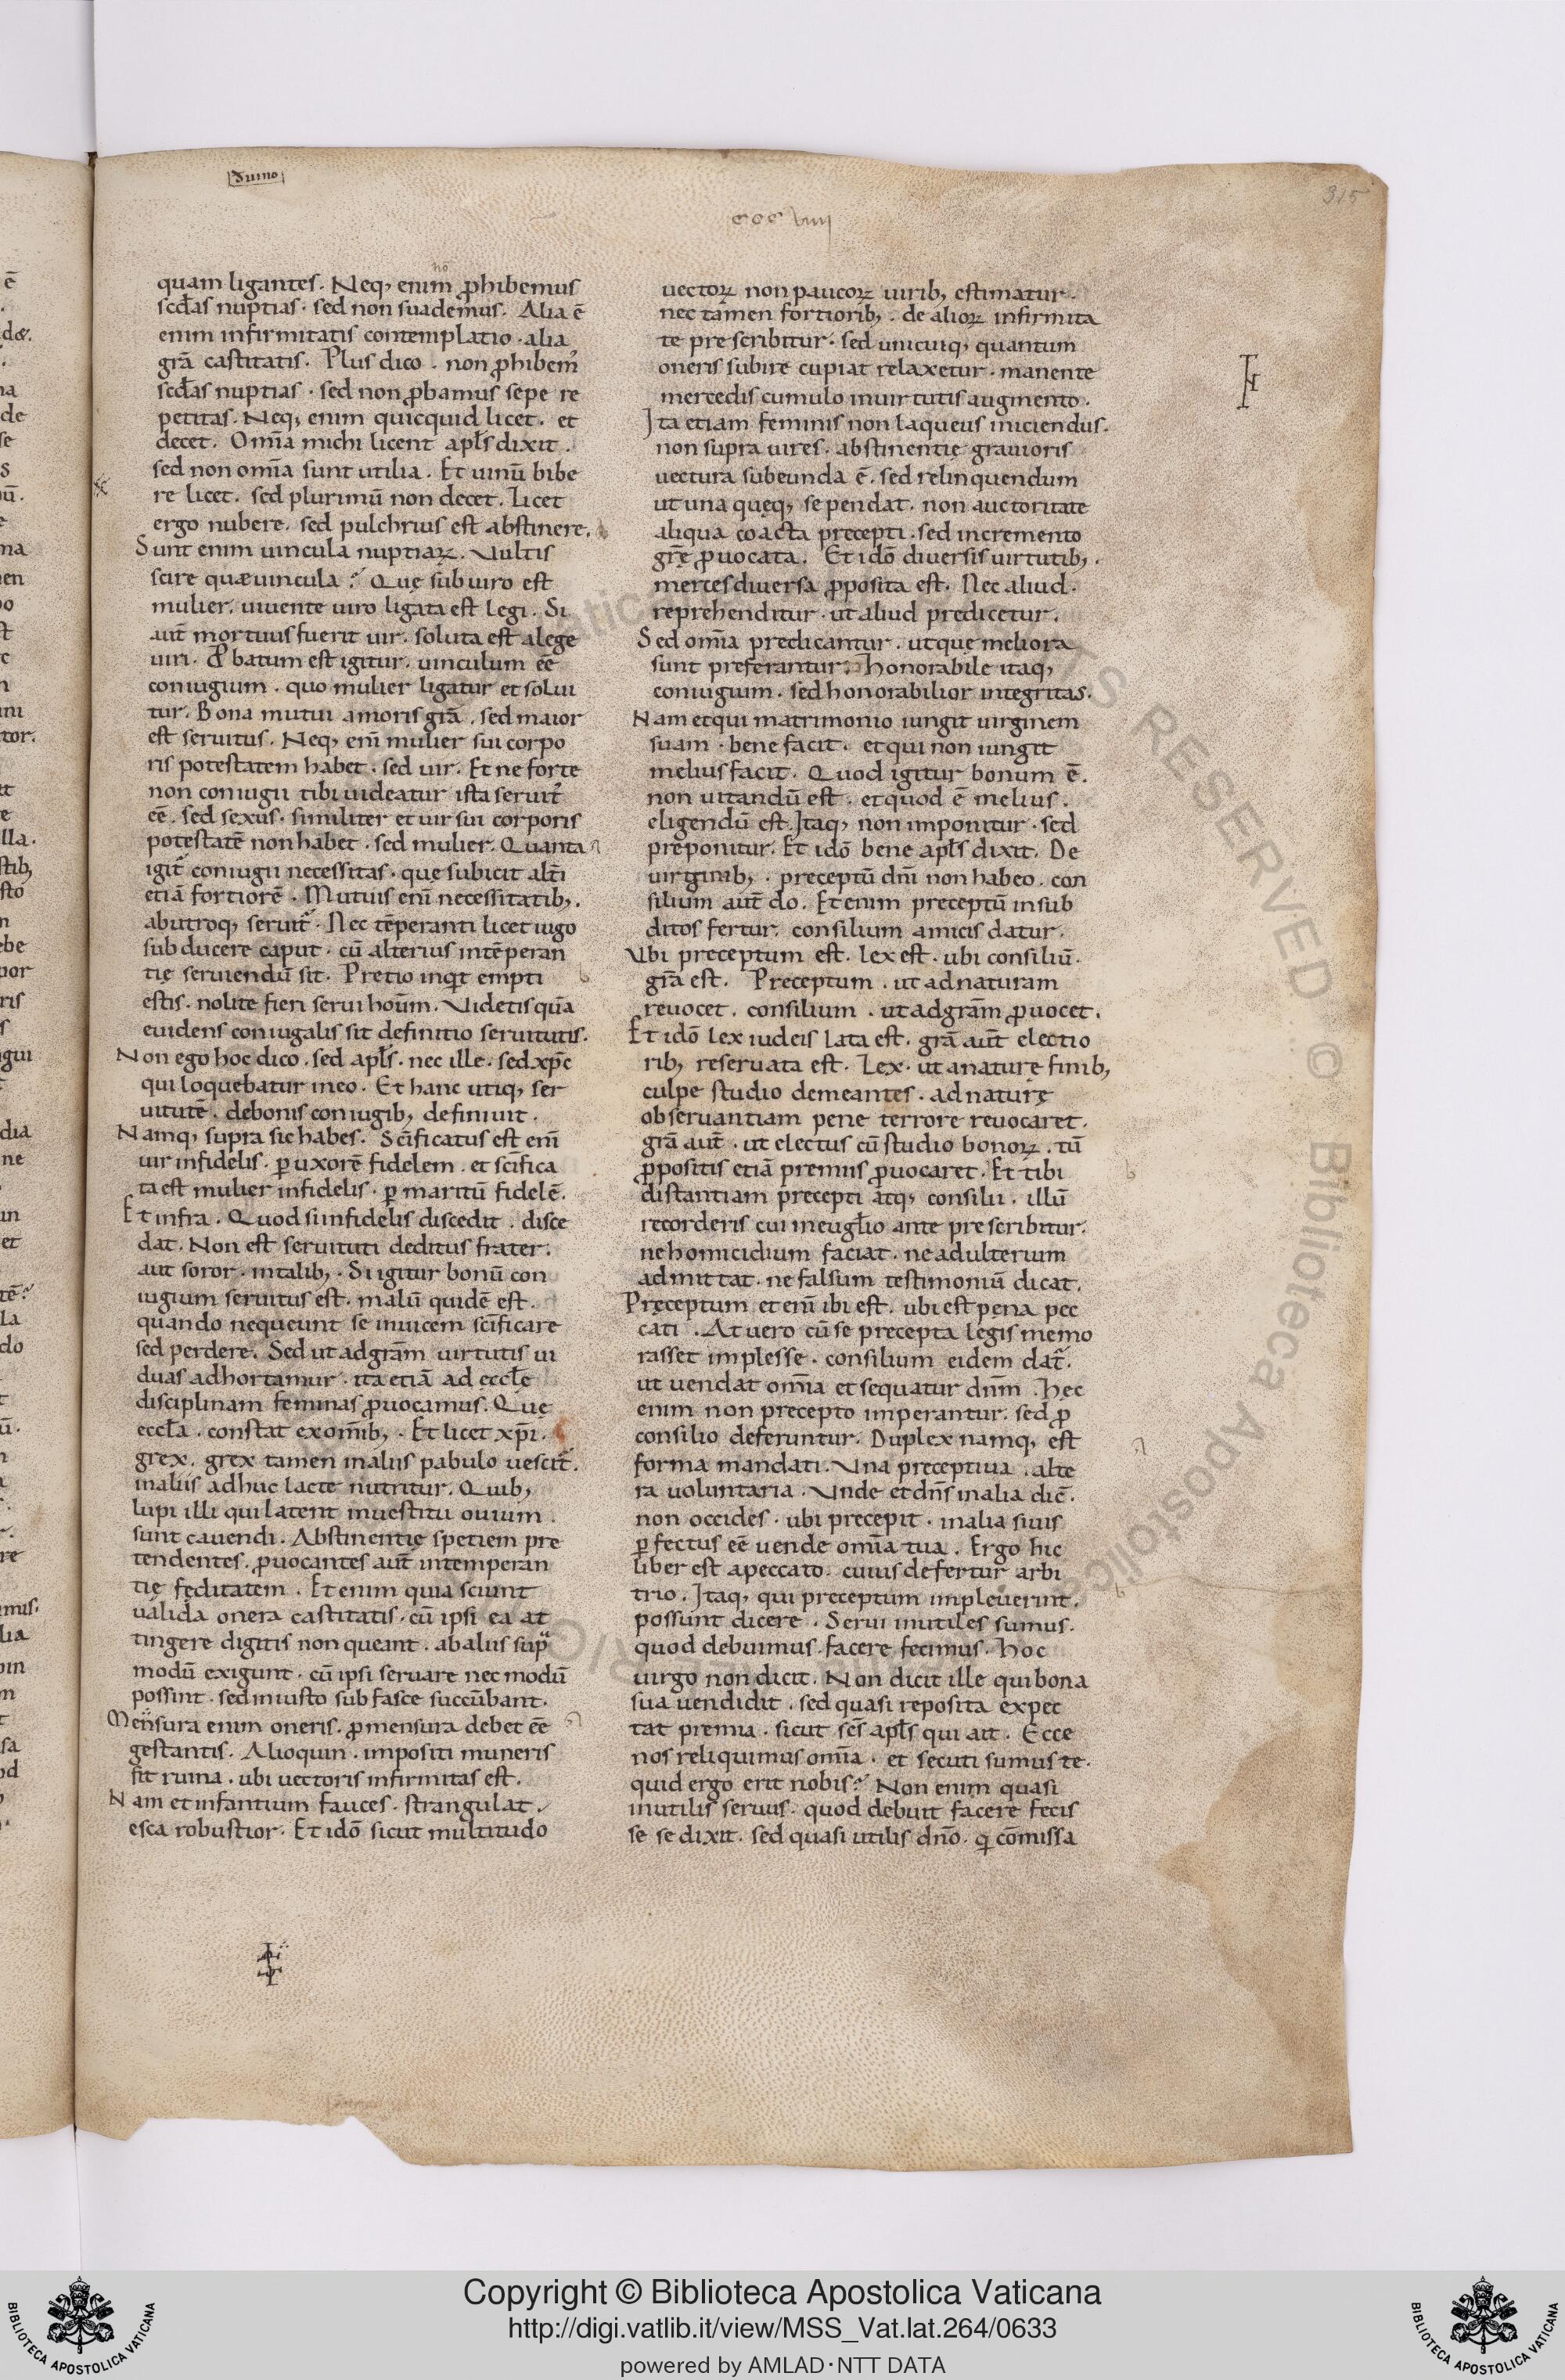 Sumo
ccc viiii
315
quam ligantes. Neq; enim ꝓhibemus
scđas nuptias. sed non suademus. Alia ē
enim infirmitatis contemplatio. alia
grā castitatis. Plus dico. non ꝓhibem᷒
scđas nuptias. sed non ꝓbamus sepe re
petitas. Neq; enim quicquid licet. et
decet. Om̄ia michi licent apl̄s dixit.
sed non om̄ia sunt utilia. Et uinū bibe
re licet. sed plurimū non decet. Licet
ergo nubere. sed pulchrius est abstinere.
Sunt enim uincula nuptiaꝝ. Vultis
scire quæ uincula? Quę sub uiro est
mulier. uiuente uiro ligata est legi. Si
aut̄ mortuus fuerit uir. soluta est a lege
uiri. Ꝓbatum est igitur. uinculum eē
coniugium. quo mulier ligatur et solui
tur. Bona mutui amoris grā. sed maior
est seruitus. Neq; eni͞ mulier sui corpo
ris potestatem habet. sed uir. Et ne forte
non coniugii tibi uideatur ista seruit᷒
eē. sed sexus. similiter et uir sui corporis
potestatē non habet. sed mulier. Quanta
igit᷑ coniugii necessitas. quę subicit alt̄i
etiā fortiorē. Mutuis eni͞ necessitatib;.
ab utroq; seruit᷑. Nec tēperanti licet iugo
subducere caput. cū alterius intēperan
tię seruiendū sit. Pretio inqͥt empti
estis. nolite fieri serui hoūm. Videtis quā
euidens coniugalis sit definitio seruitutis.
Non ego hoc dico. sed apl̄s. nec ille. sed xp̄c
qui loquebatur in eo. Et hanc utiq; ser
uitutē. de bonis coniugib; definiuit.
Namq; supra sic habes. Scīficatus est eni͞
uir infidelis. ꝑ uxorē fidelem. et scīfica
ta est mulier infidelis. ꝑ maritū fidelē.
Et infra. Quod si infidelis discedit. disce
dat. Non est seruituti deditus frater.
aut soror. in talib;. Si igitur bonū con
iugium seruitus est. malū quidē est.
quando nequeunt se inuicem scīficare
sed perdere. Sed ut ad grām uirtutis ui
duas adhortamur. ita etiā ad eccl̄ę
disciplinam feminas ꝓuocamus. Quę
eccl̄a. constat ex om̄ib;. Et licet xp̄i.
grex. grex tamen in aliis pabulo uescit᷑.
in aliis adhuc lacte nutritur. Quib;
lupi illi qui latent in uestitu ouium.
sunt cauendi. Abstinentię spetiem pre
tendentes. ꝓuocantes aut̄ intemperan
tię fęditatem. Et enim quia sciunt
ualida onera castitatis. cū ipsi ea at
tingere digitis non queant. ab aliis supͣ
modū exigunt. cū ipsi seruare nec modū
possint. sed iniusto sub fasce succūbant.
Mensura enim oneris. ꝓ mensura debet eē
gestantis. Alioquin. impositi muneris
fit ruina. ubi uectoris infirmitas est.
Nam et infantium fauces. strangulat.
esca robustior. Et idō sicut multitudo
uectoꝝ non paucoꝝ uirib; estimatur.
nec tamen fortiorib;. de alioꝝ infirmita
te prescribitur. sed unicuiq; quantum
oneris subire cupiat relaxetur. manente
mercedis cumulo in uirtutis augmento.
Ita etiam feminis non laqueus iniciendus.
non supra uires. abstinentię grauioris
uectura subeunda ē. sed relinquendum
ut una quęq; se pendat. non auctoritate
aliqua coacta precepti. sed incremento
grę̄ ꝓuocata. Et idō diuersis uirtutib;.
merces diuersa ꝓposita est. Nec aliud.
reprehenditur. ut aliud predicetur.
Sed om̄ia predicantur. ut quę meliora
sunt preferantur. Honorabile itaq;
coniugium. sed honorabilior integritas.
Nam et qui matrimonio iungit uirginem
suam. bene facit. et qui non iungit
melius facit. Quod igitur bonum ē.
non uitandū est. et quod ē melius.
eligendū est. Itaq; non imponitur. sed
preponitur. Et idō bene apl̄s dixit. De
uirginib;. preceptū dn̄i non habeo. con
silium aut̄ do. Et enim preceptū in sub
ditos fertur. consilium amicis datur.
Vbi preceptum est. lex est. ubi consiliū.
grā est. Preceptum. ut ad naturam
reuocet. consilium. ut ad grām ꝓuocet.
Et idō lex iudeis lata est. grā aut̄ electio
rib; reseruata est. Lex. ut a naturę finib;
culpe studio demeantes. ad naturę
obseruantiam pene terrore reuocaret.
grā aut̄. ut electus cū studio bonoꝝ. tū
ꝓpositis etiā premiis ꝓuocaret. Et tibi
distantiam precepti atq; consilii. illū
recorderis cui in eugl̄io ante prescribitur.
ne homicidium faciat. ne adulterium
admittat. ne falsum testimoniū dicat.
Pręceptum et eni͞ ibi est. ubi est pęna pec
cati. At uero cū se precepta legis memo
rasset implesse. consilium eidem dat᷑.
ut uendat om̄ia et sequatur dn̄m. Hęc
enim non precepto imperantur. sed ꝓ
consilio deferuntur. Duplex namq; est
forma mandati. Vna preceptiua. alte
ra uoluntaria. Vnde et dn̄s in alia dic̄.
non occides. ubi precepit. in alia si uis
ꝑfectus eē uende om̄ia tua. Ergo hic
liber est a peccato. cuius defertur arbi
trio. Itaq; qui preceptum impleuerint.
possunt dicere. Serui inutiles sumus.
quod debuimus facere fecimus. Hoc
uirgo non dicit. Non dicit ille qui bona
sua uendidit. sed quasi reposita expec
tat premia. sicut sc̄s apl̄s qui ait. Ecce
nos reliquimus om̄ia. et secuti sumus te.
quid ergo erit nobis? Non enim quasi
inutilis seruus. quod debuit facere fecis
se se dixit. sed quasi utilis dn̄o. qͥ cōmissa
Copyright © Biblioteca Apostolica Vaticana
http://digi.vatlib.it/view/MSS_Vat.lat.264/0633
powered by AMLAD·NTT DATA
BIBLIOTECA APOSTOLICA VATICANA
BIBLIOTECA APOSTOLICA VATICANA